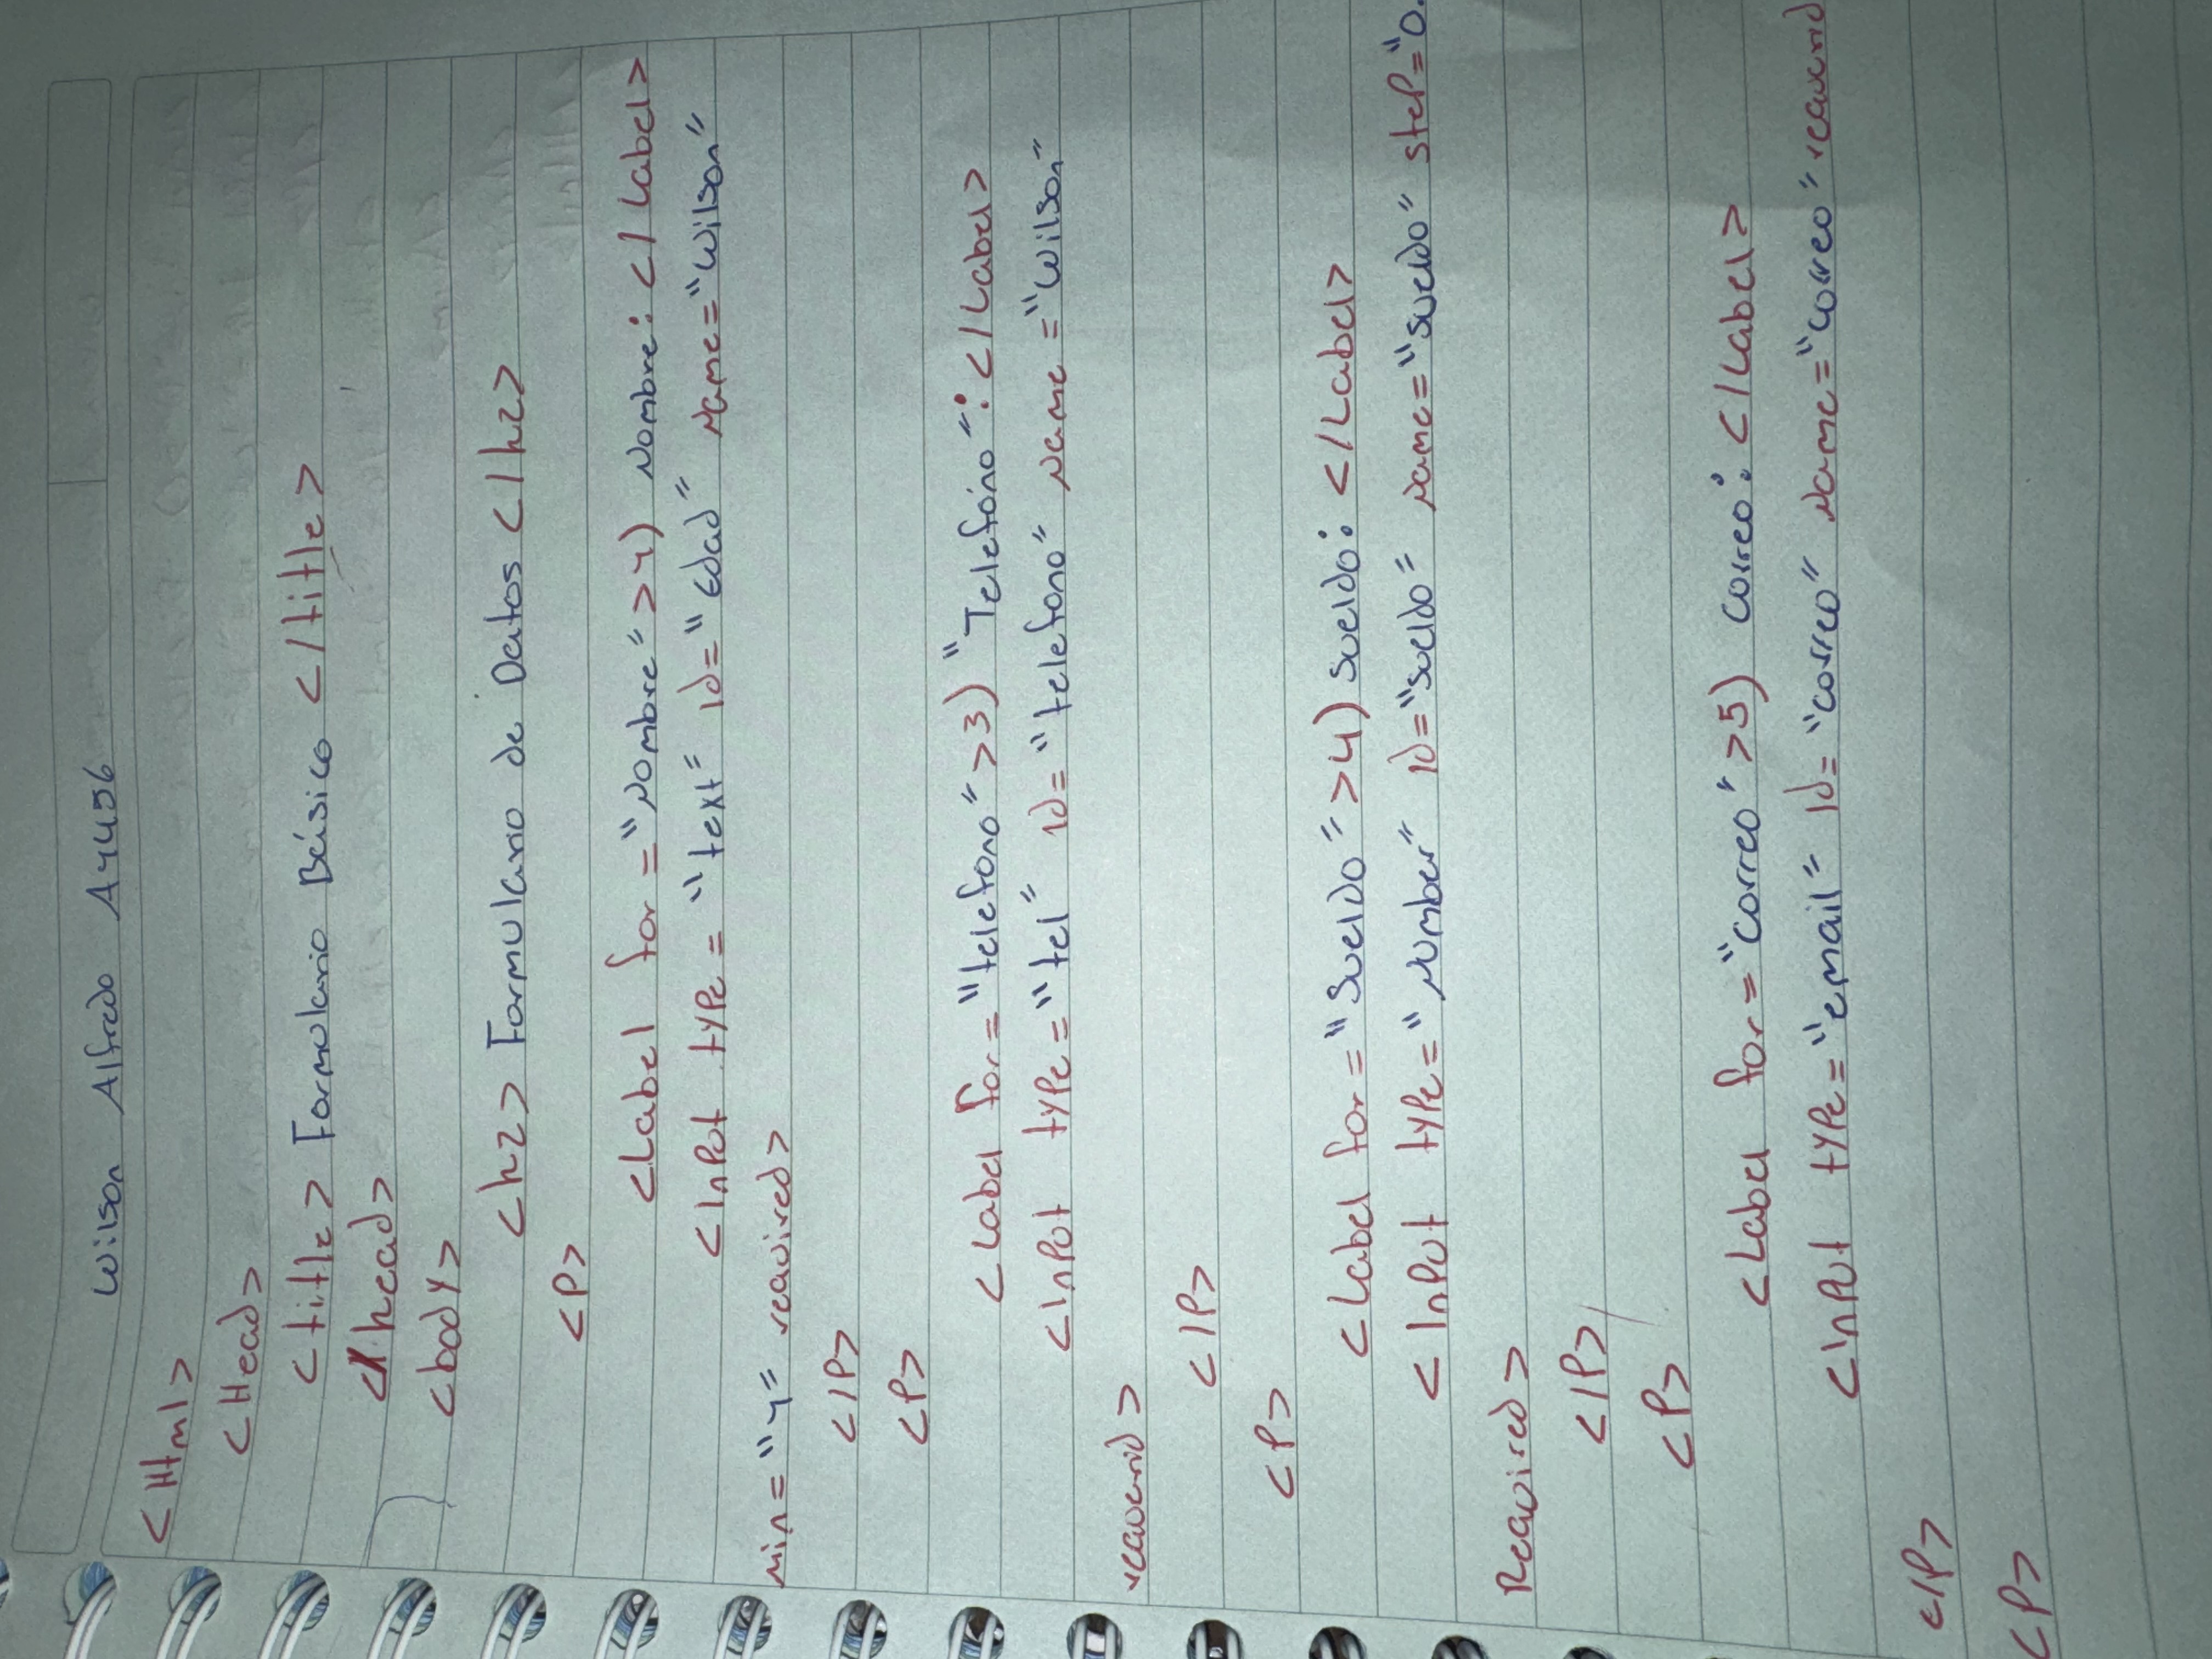 Wilson Alfredo A4456
<Html>
<Head>
<title> Formulario Básico </title>
</head>
<body>
<h2> Formulario de Datos </h2>
<P>
<Label for="Nombre">4) Nombre: </Label>
<InPut tyPe="text" id="Edad" Name="Wilson"
Min="4" required>
</P>
<P>
<Label for="telefono">3) "Telefóno": </Label>
<InPut tyPe="tel" id="telefono" Name="Wilson"
requerid>
</P>
<P>
<Label for="Sueldo">4) sueldo: </Label>
<InPut tyPe="Number" id="Sueldo" Name="Sueldo" steP="0.
Required>
</P>
<P>
<Label for="correo">5) correo: </Label>
<InPut tyPe="email" id="correo" Name="correo" requerid
</P>
<P>